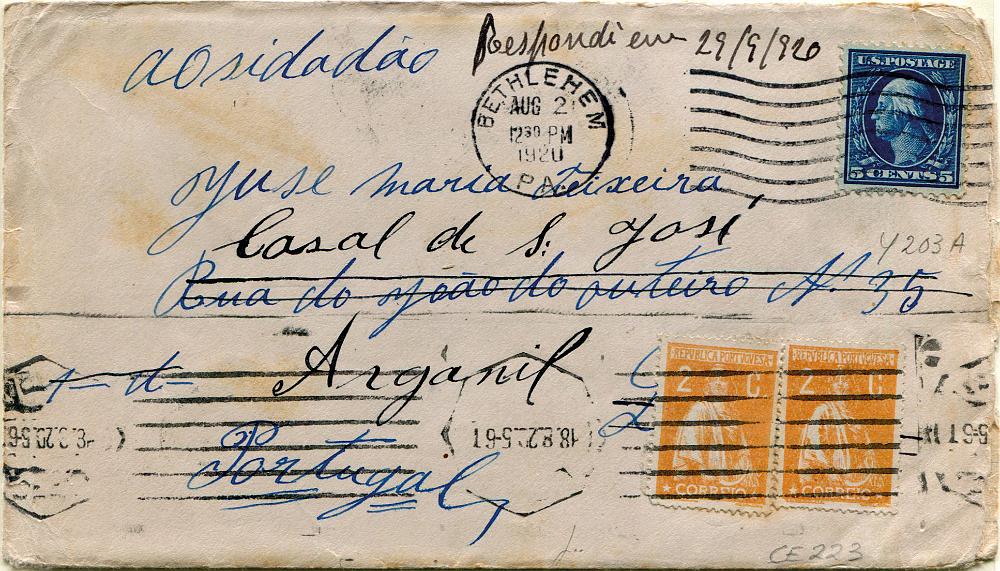 aosidadão
Respondi em 29/9/920
BETHLEHEM
AUG 2
12 30 PM
1920
PA.
U.S. POSTAGE
5 CENTS 5
maria teixeira
Casal de S. José
Y 203 A
Rua do João do outeiro Nº 35
Arganil
REPVBLICA PORTVGVESA
2 C.
CORREIO
REPVBLICA PORTVGVESA
2 C.
CORREIO
Portugal,
CE 223